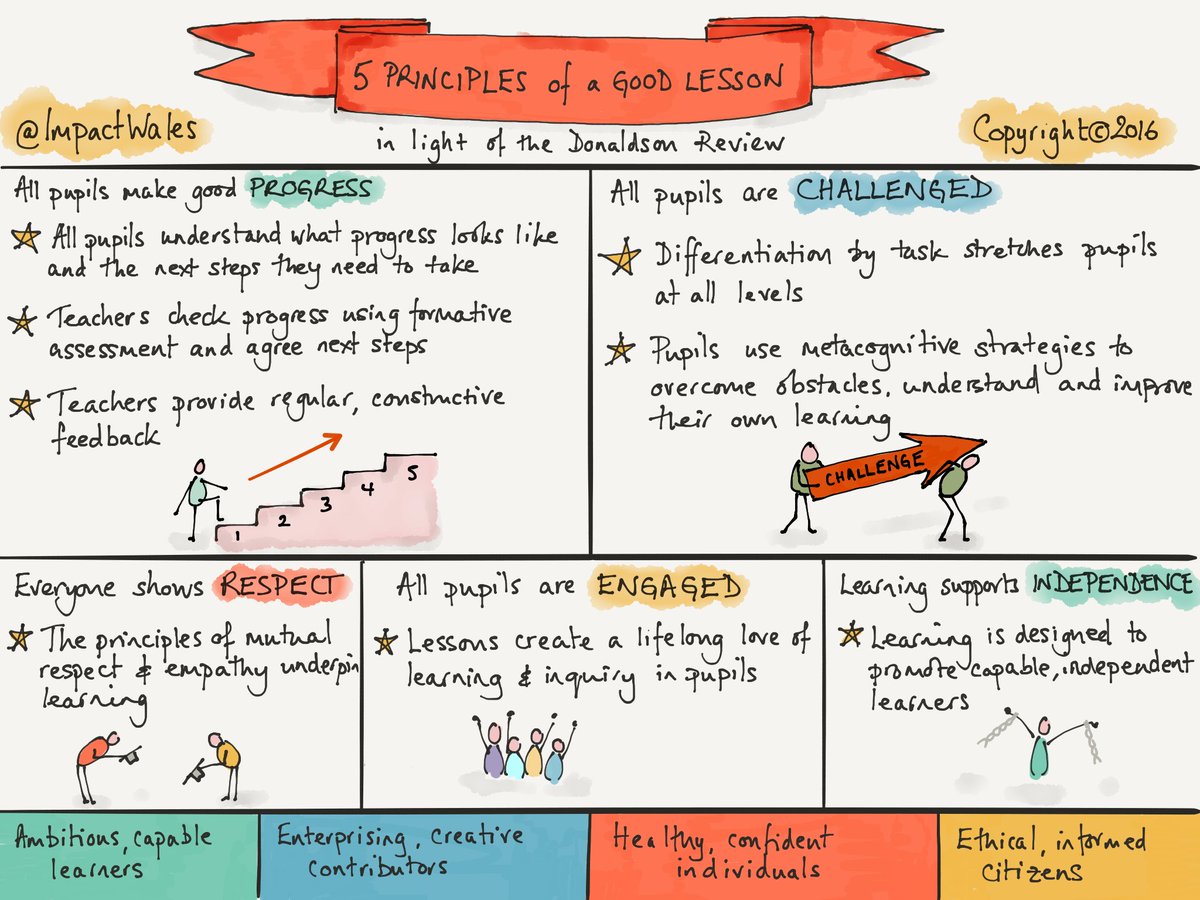 5 PRINCIPLES of a GOOD LESSON
@ImpactWales
in light of the Donaldson Review
Copyright©2016
All pupils make good PROGRESS
All pupils understand what progress looks like
and the next steps they need to take
Teachers check progress using formative
assessment and agree next steps
Teachers provide regular, constructive
feedback
1
2
3
4
5
All pupils are CHALLENGED
Differentiation by task stretches pupils
at all levels
Pupils use metacognitive strategies to
overcome obstacles, understand and improve
their own learning
CHALLENGE
Everyone shows RESPECT
The principles of mutual
respect & empathy underpin
learning
All pupils are ENGAGED
Lessons create a lifelong love of
learning & inquiry in pupils
Learning supports INDEPENDENCE
Learning is designed to
promote capable, independent
learners
Ambitious, capable
learners
Enterprising, creative
contributors
Healthy, confident
individuals
Ethical, informed
citizens